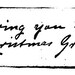 ing you
ristmas Gr